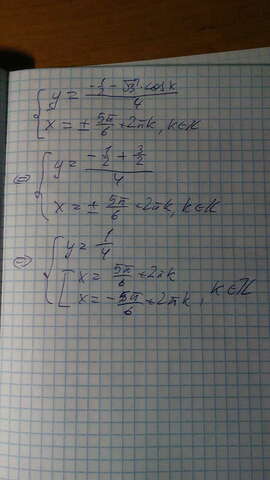 { y = (-1/2 - √3 · cos x) / 4
x = ± 5π/6 + 2πk, k∈ℤ
⇔ { y = (-1/2 + 3/2) / 4
x = ± 5π/6 + 2πk, k∈ℤ
⇔ { y = 1/4
[ x = 5π/6 + 2πk
x = - 5π/6 + 2πk , k∈ℤ